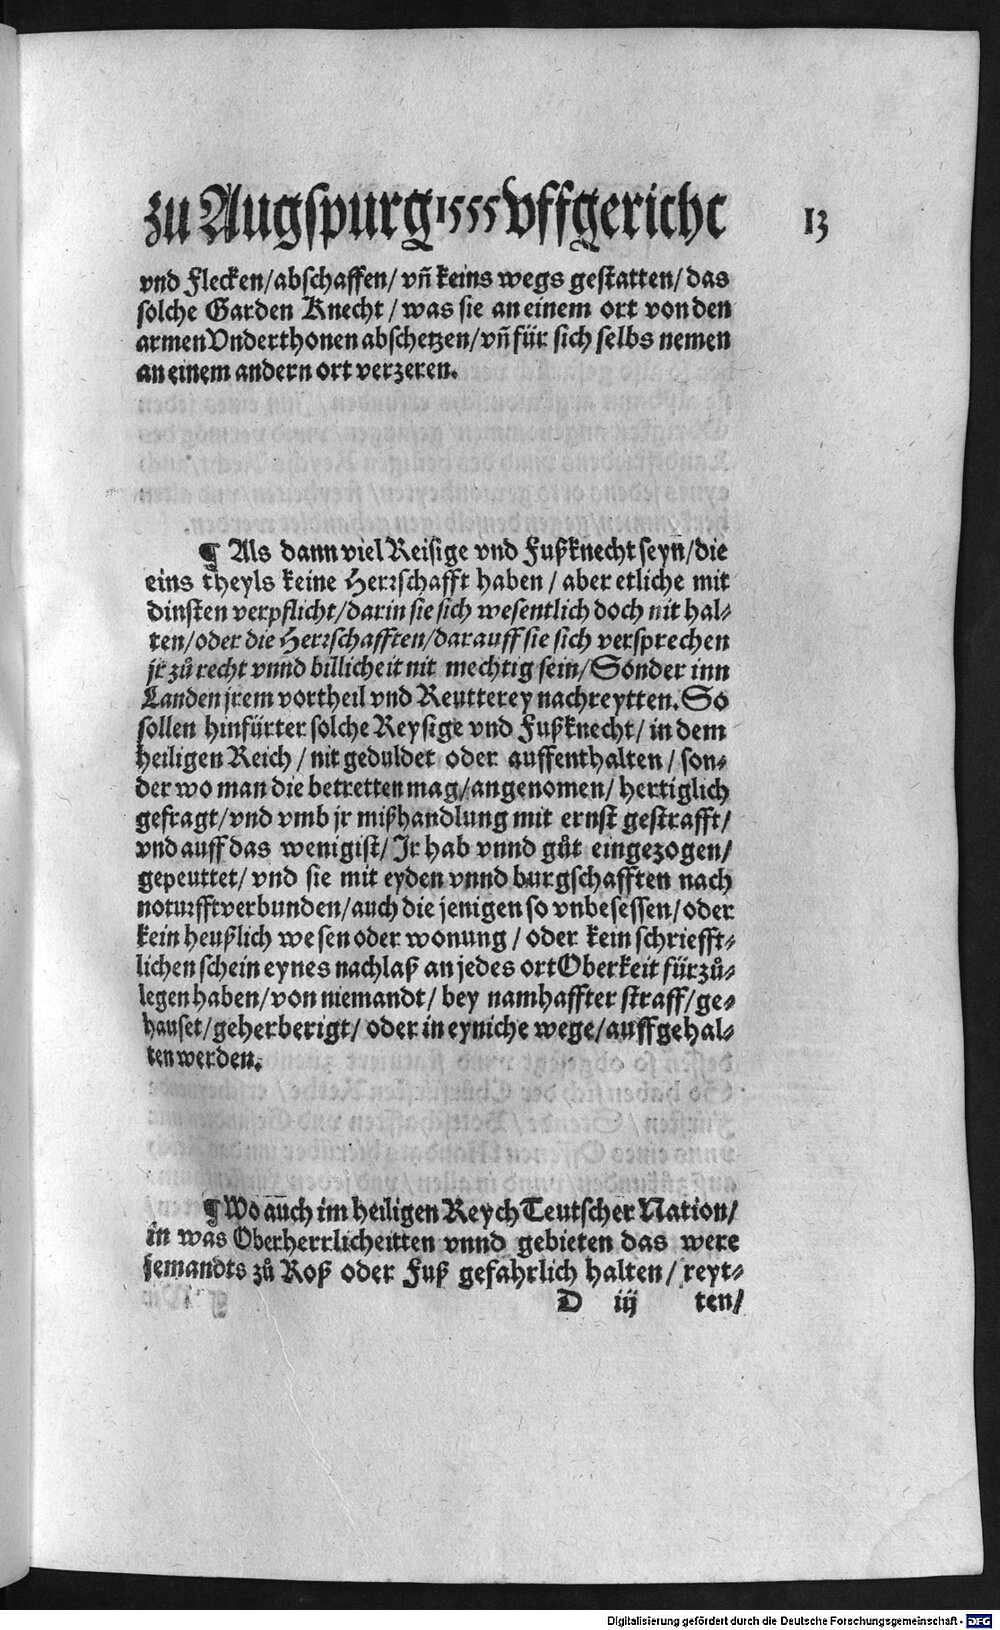 zu Augspurg 1555 vffgericht 13
vnd Flecken/abschaffen/ vñ keins wegs gestatten/das
solche Garden Knecht/was sie an einem ort von den
armen Vnderthonen abschetzen/vñ für sich selbs nemen
an einem andern ort verzeren.
¶ Als dann viel Reisige vnd Fußknecht seyn̄/die
eins theyls keine Herꝛschafft haben/aber etliche mit
dinsten verpflicht/darin sie sich wesentlich doch nit hal⸗
ten/oder die Herꝛschafften/darauff sie sich versprechen
jr zů recht vnnd billicheit nit mechtig sein/Sonder inn
Landen jrem vortheil vnd Reutterey nachreytten. So
sollen hinfürter solche Reysige vnd Fußknecht/in dem
heiligen Reich/nit geduldet oder auffenthalten/son⸗
der wo man die betretten mag/angenomen/hertiglich
gefragt/vnd vmb jr mißhandlung mit ernst gestrafft/
vnd auff das wenigist/Jr hab vnnd gůt eingezogen/
gepeuttet/vnd sie mit eyden vnnd burgschafften nach
notuꝛfft verbunden/auch die jenigen so vnbesessen/oder
kein heußlich wesen oder wonung/oder kein schriefft⸗
lichen schein eynes nachlaß an jedes ort Oberkeit fürzů⸗
legen haben/von niemandt/bey namhaffter straff/ge⸗
hauset/geherberigt/oder in eyniche wege/auffgehal⸗
ten werden.
¶ Wo auch im heiligen Reych Teutscher Nation/
in was Oberherrlicheitten vnnd gebieten das were
jemandts zů Roß oder Fuß gefahrlich halten/reyt⸗
D iij ten/
Digitalisierung gefördert durch die Deutsche Forschungsgemeinschaft - DFG